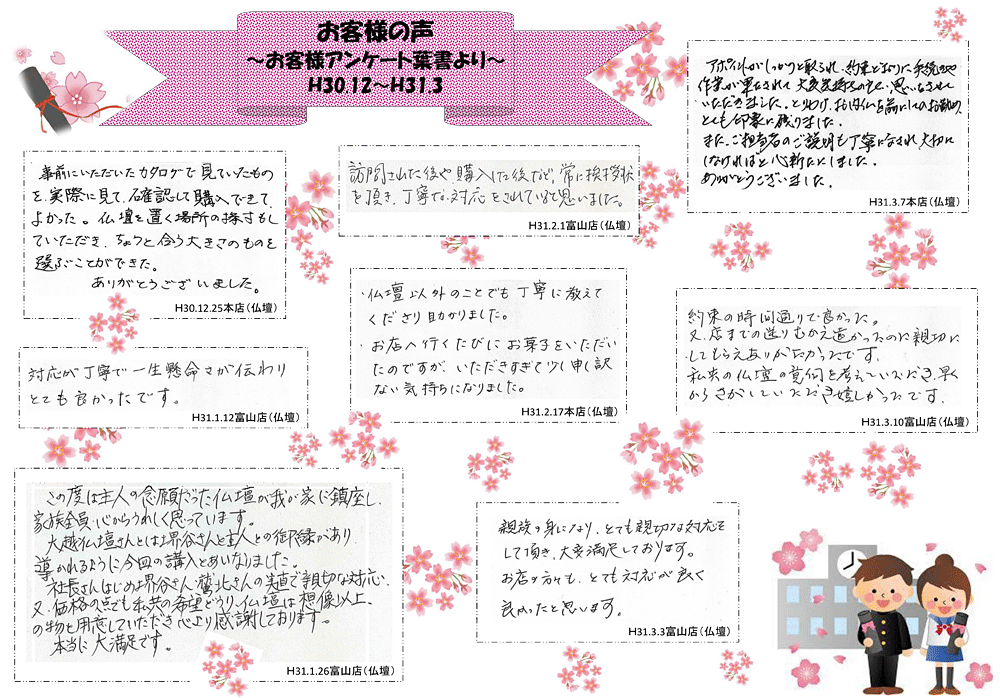 お客様の声
～お客様アンケート葉書より～
H30.12～H31.3
事前にいただいたカタログで見ていたもの
を、実際に見て、確認して購入できて
よかった。仏壇を置く場所の採寸もし
ていただき、ちょうど合う大きさのものを
選ぶことができた。
ありがとうございました。
H30.12.25本店（仏壇）
訪問された後や購入した後など、常に挨拶状
を頂き、丁寧な対応をされていると思いました。
H31.2.1富山店（仏壇）
アポイントがしっかりと取られ、約束どおりに手続きや
作業が単なされて、大変気持ちの良い思いをさせて
いただきました。とりわけ、お内仏を前にしてのお勤め、
とても印象に残りました。
また、ご担当者のご説明も丁寧になされ、大切に
しなければと心新たにしました。
ありがとうございました。
H31.3.7本店（仏壇）
対応が丁寧で一生懸命さが伝わり
とても良かったです。
H31.1.12富山店（仏壇）
・仏壇以外のことでも丁寧に教えて
くださり助かりました。
・お店へ行くたびにお菓子をいただい
たのですが、いただきすぎて少し申し訳
ない気持ちになりました。
H31.2.17本店（仏壇）
約束の時間通りで良かった。
又、店までの送りむかえ遠かったのに親切に
してもらえありがたかったです。
私共の仏壇の意向を考えていただき、早く
からさがしていただき嬉しかったです。
H31.3.10富山店（仏壇）
この度は主人の念願だった仏壇が我が家に鎮座し、
家族全員、心からうれしく思っています。
大越仏壇さんとは堺谷さんと主人との御縁があり、
導かれるように今回の購入とあいなりました。
社長さんはじめ堺谷さん、鷲北さんの実直で親切な対応、
又、価格の点でも私共の希望どうり、仏壇は想像以上
の物を用意していただき心より感謝しております。
本当に大満足です。
H31.1.26富山店（仏壇）
親族の身になり、とても親切な対応を
して頂き、大変満足しております。
お店の方々も、とても対応が良く
良かったと思います。
H31.3.3富山店（仏壇）